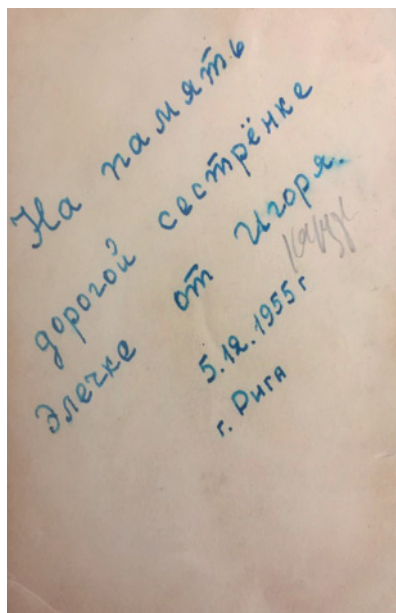 На память
дорогой сестрёнке
Элечке от Игоря.
5.12.1955 г
г. Рига